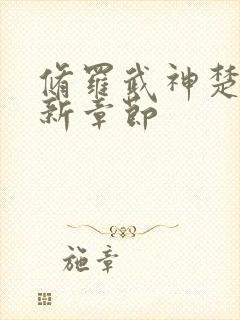 脩羅武神楚
新章節
施章